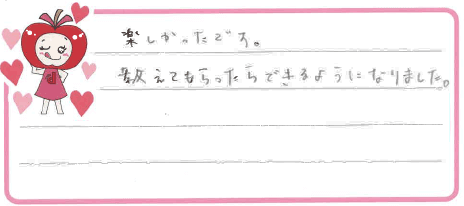 楽しかったです。
教えてもらったらできるようになりました。